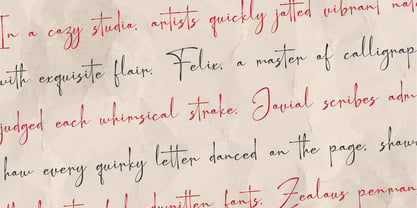 In a cozy studio, artists quickly jotted vibrant
with exquisite flair. Felix, a master of
judged each whimsical stroke. Jovial scribes
how every quirky letter danced on the page,
fonts. Zealous